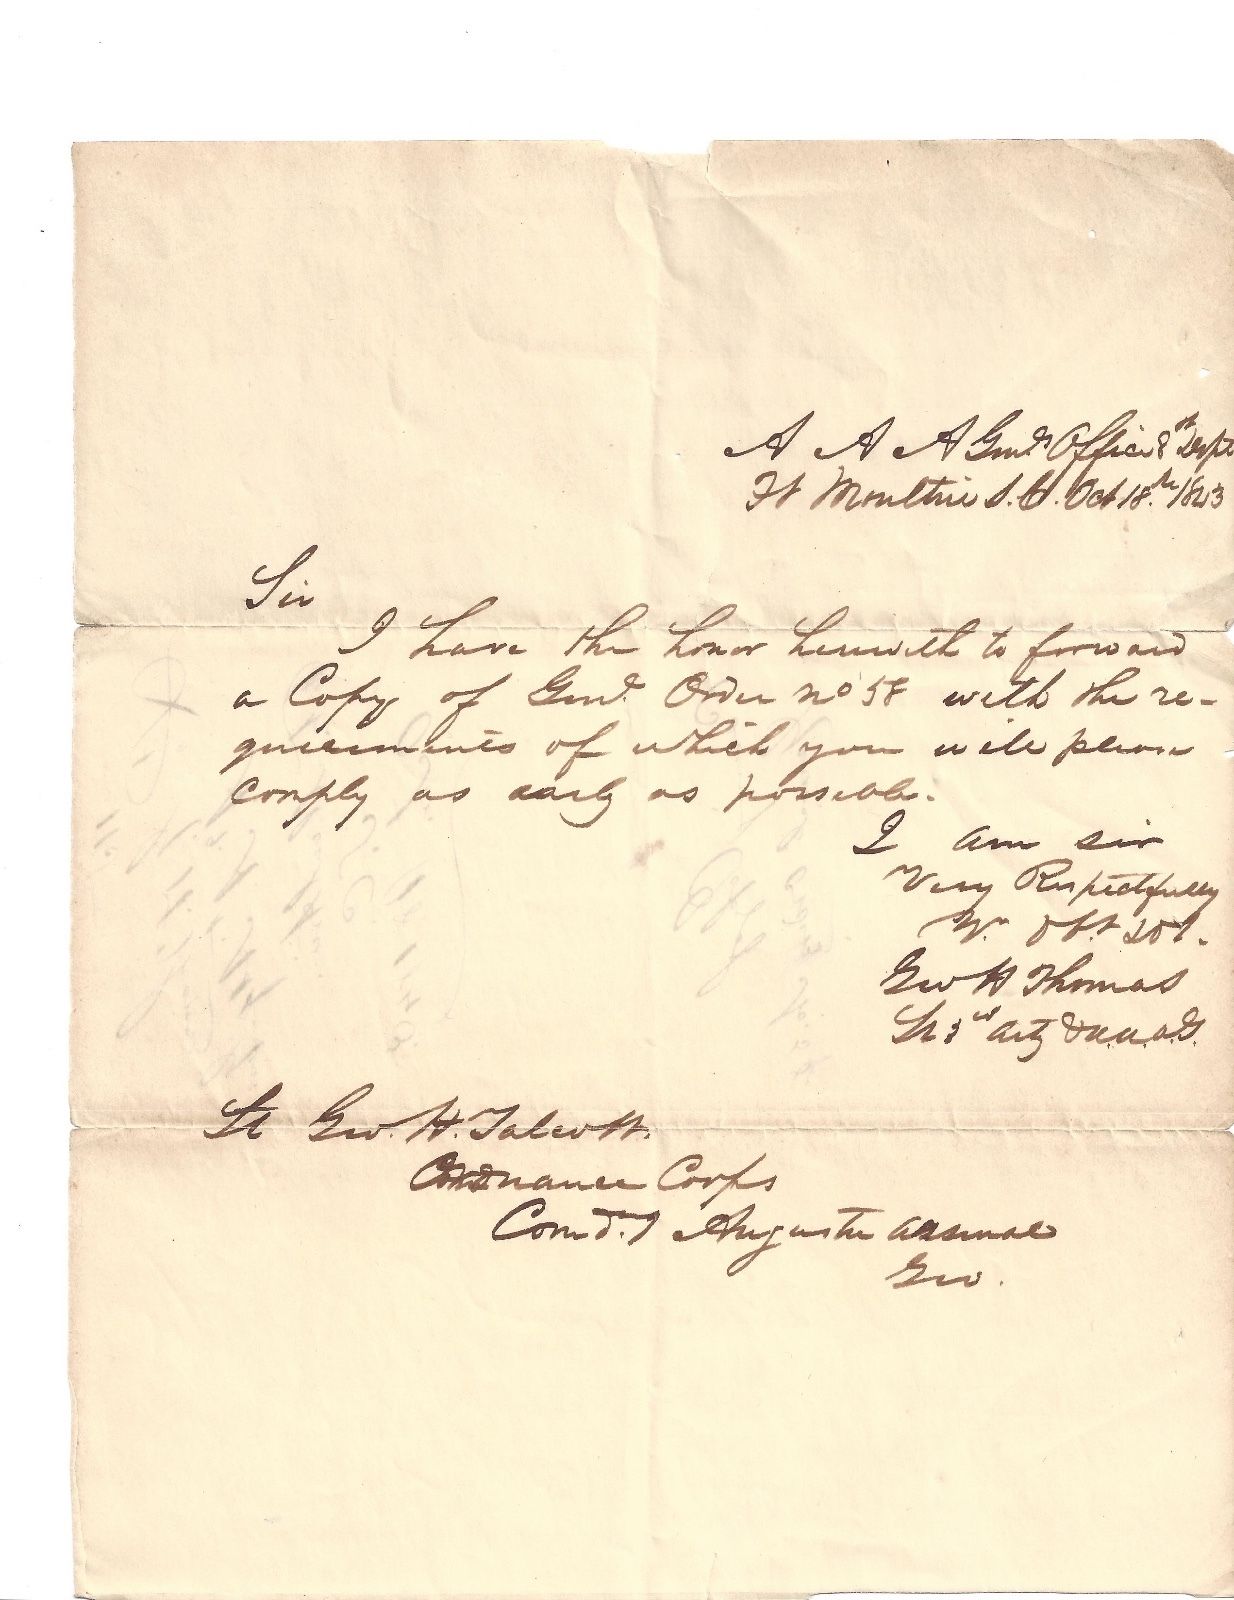 A A A Genl's Office 8th Dept
Ft Moultrie S.C. Oct 18th 1843
Sir
I have the honor herewith to forward
a Copy of Genl Order No 58 with the re-
quirements of which you will please
comply as early as possible.
I am sir
Very Respectfully
Yr Obt
Geo H Thomas
Lt 3rd Arty & A.A.A.G.
Lt Geo. H. Talcott.
Ordnance Corps
Comdg Augusta Arsenal
Geo.